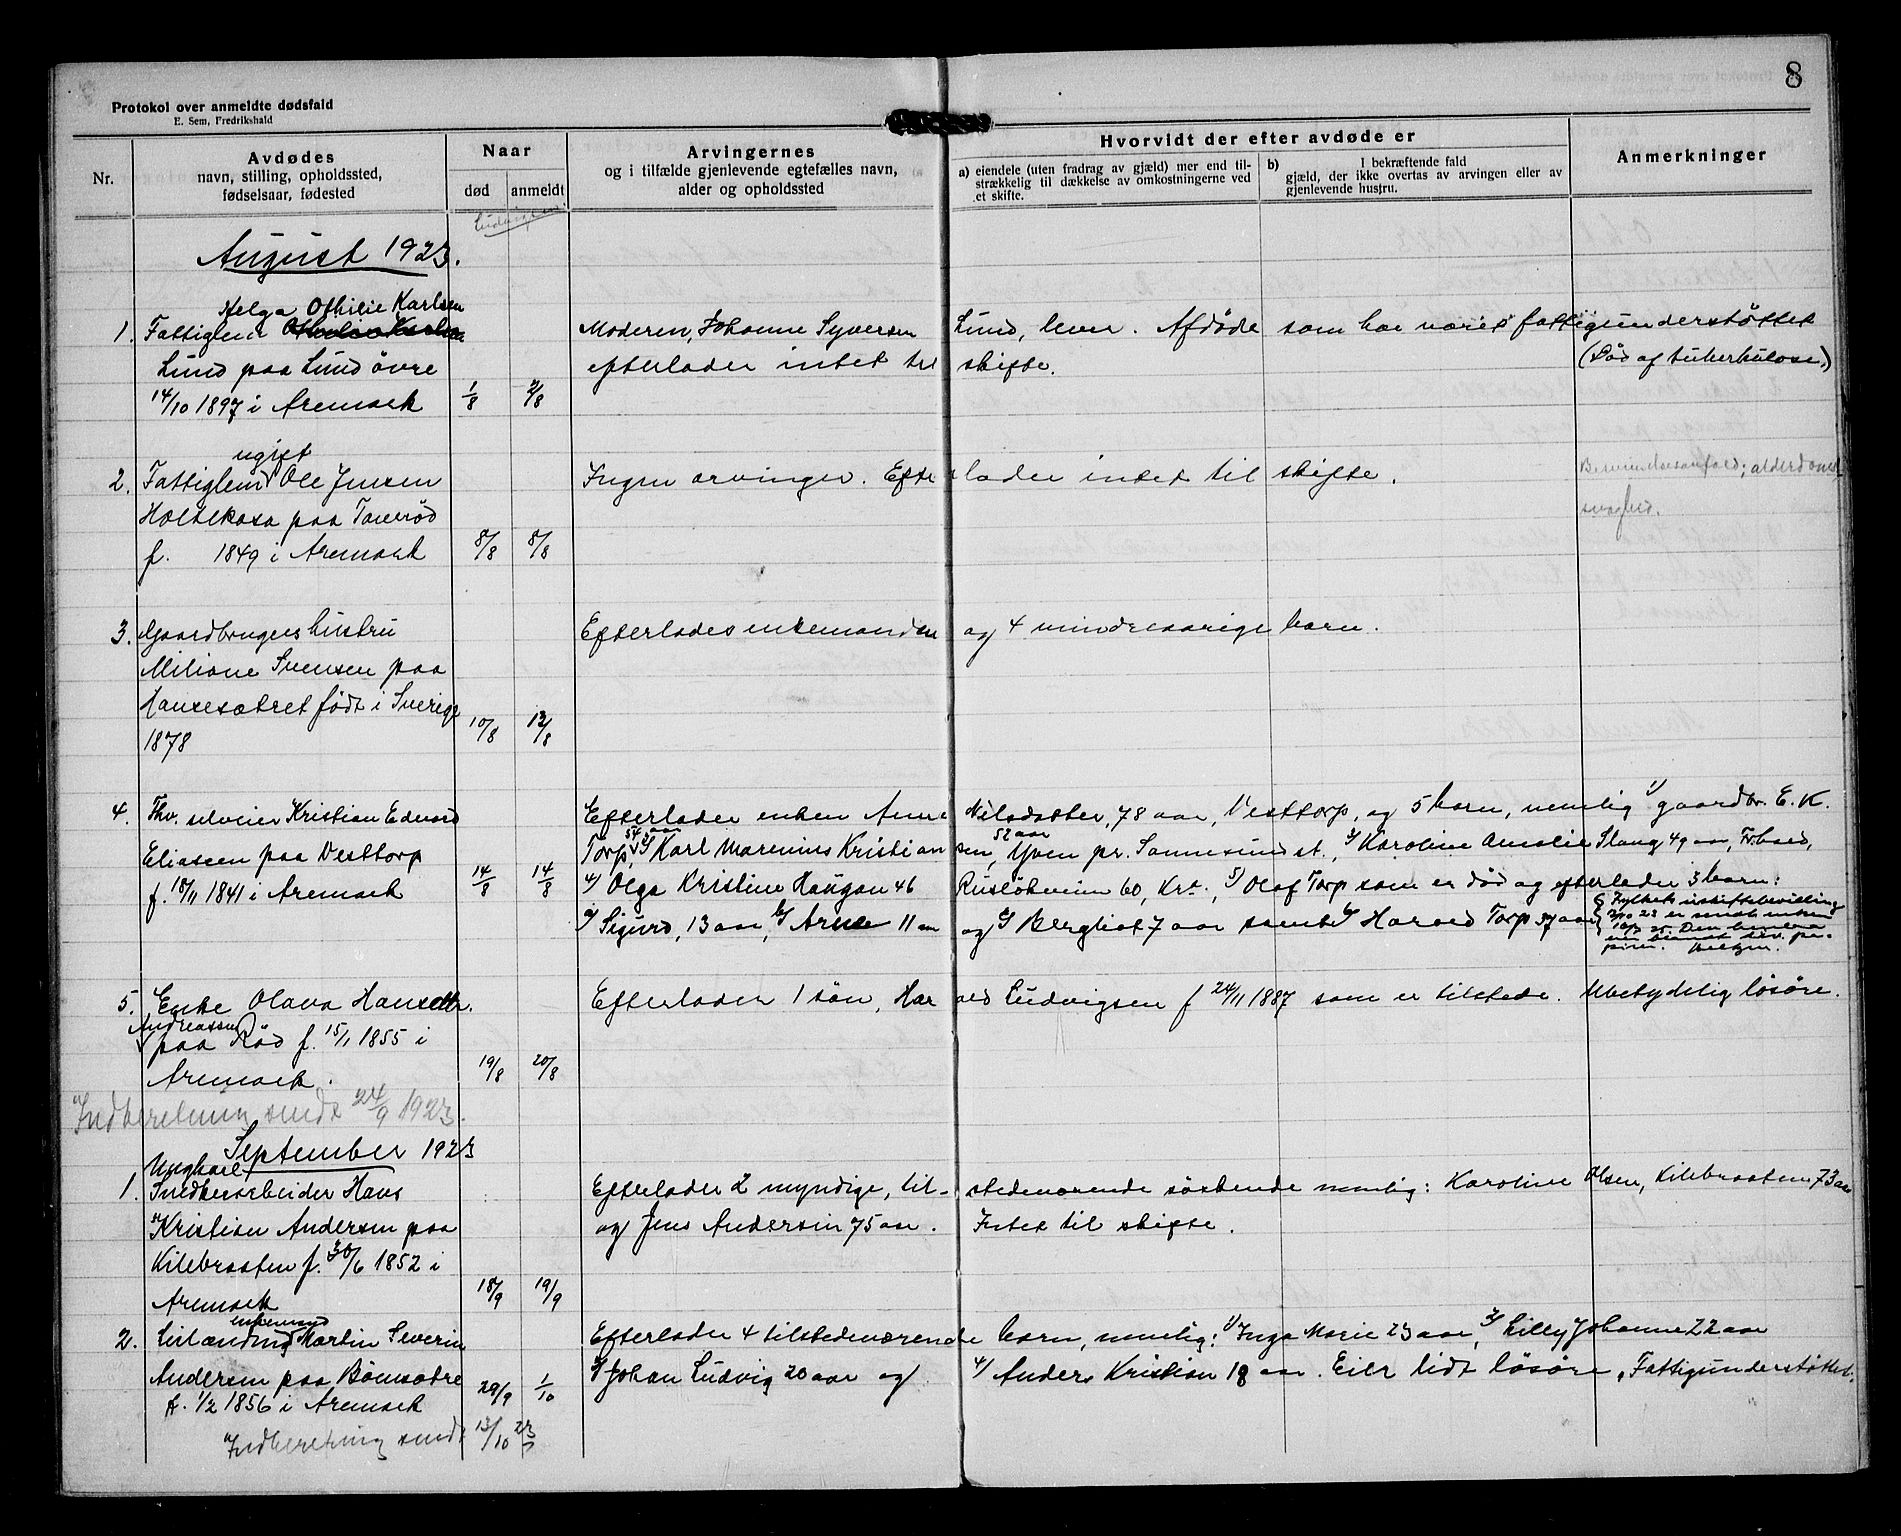 8
Protokol over anmeldte dødsfald
E. Sem, Fredrikshald
Nr.
Avdødes
navn, stilling, opholdssted,
fødselsaar, fødested
Naar
død
anmeldt
Arvingernes
og i tilfælde gjenlevende egtefælles navn,
alder og opholdssted
Hvorvidt der efter avdøde er
a) eiendele (uten fradrag av gjæld) mer end til-
strækkelig til dækkelse av omkostningerne ved
et skifte.
b) I bekræftende fald
gjæld, der ikke overtas av arvingen eller av
gjenlevende hustru.
Anmerkninger
August 1923.
Helga Othilie Karlsen
1. Fattiglem Moderen, Johanne Syversen Lund, lever. Afdøde som har været fattigunderstøttet
Lund paa Lund øvre efterlader intet til skifte. (Død af tuberkulose.)
14/10 1897 i Aremark 1/8 2/8
ugift
2. Fattiglem Ole Jensen Ingen arvinger. Efterlader intet til skifte. alderdoms
Holtekasa paa svaghed.
f. 1849 i Aremark 8/8 8/8
3. Gaardbrugers hustru Efterlades enkemanden og 4 mindreaarige barn.
Miliane Svensen paa
født i Sverige 10/8
1878
4. Thv. selveier Kristian Edvard Efterlader enken Anne Nilsdatter, 78 aar, Vesttorp, og 5 barn, nemlig 1/ gaardbr. E. K.
54 aar 52 aar
Eliassen paa Vesttorp Torp, 2/ Karl Marenius Kristiansen, Yven pr. Sannesund st., 3/ Karoline Amalie Slang 49 aar,
f. 18/11 1841 i Aremark 14/8 14/8 4/ Olga Kristine Haugan 46 Ruseløkveien 60, Kra., 5/ Olaf Torp som er død og efterlader 3 barn:
a/ Sigurd, 13 aar, b/ Arne 11 aar og c/ Bergliot 7 aar samt 6/ Harald Torp 37 aar
5. Enke Olava Hansdtr. Efterlader 1 søn, Harald Ludvigsen f 24/11 1887 som er tilstede. Ubetydelig løsøre.
Andreassen
paa Rød f. 15/1 1855 i
Aremark. 19/8 20/8
Indberetning sendt 24/9 1923.
September 1923
Ungkarl
1. Snedkerarbeider Hans Efterlader 2 myndige, tilstedeværende søskende nemlig: Karoline Olsen, Kilebraaten 73 aar
Kristian Andersen paa og Jens Andersen 75 aar. Intet til skifte.
Kilebraaten f. 30/6 1852 i
Aremark 18/9 19/9
enkemand
2. Leilænding Martin Severin Efterlader 4 tilstedeværende barn, nemlig: 1/ Inga Marie 23 aar, 2/ Lilly Johanne 22 aar
Andersen paa Bønsætre 3/ Johan Ludvig 20 aar og 4/ Anders Kristian 18 aar. Eier lidt løsøre, Fattigunderstøttet.
f. 1/2 1856 i Aremark 29/9 1/10
Indberetning sendt 13/10 23